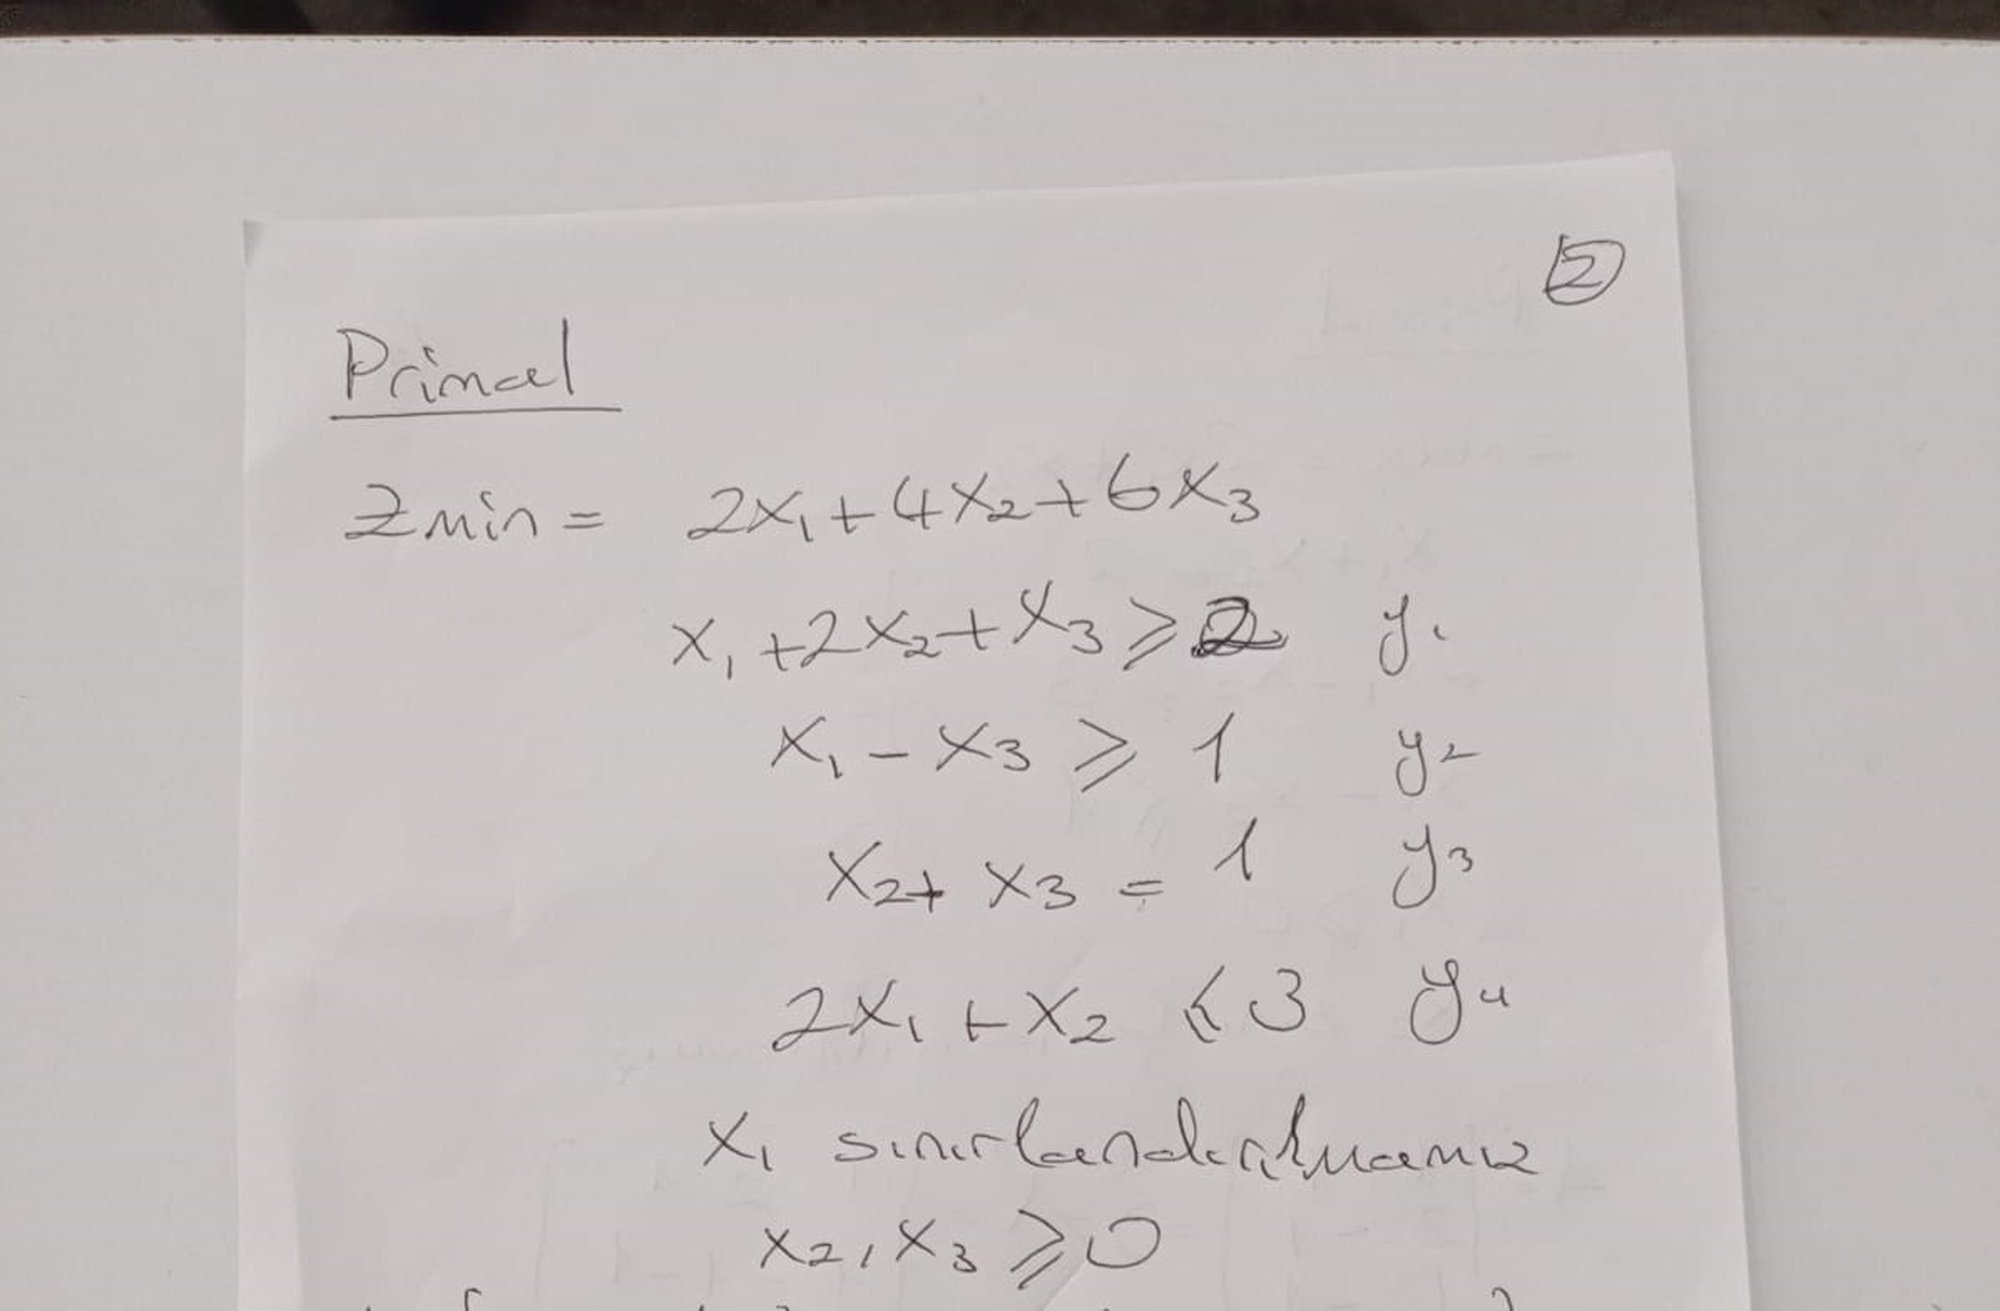 2
Primal
Zmin = 2x₁ + 4x₂ + 6x₃
x₁ + 2x₂ + x₃ ≥ 2 y₁
x₁ - x₃ ≥ 1 y₂
x₂ + x₃ = 1 y₃
2x₁ + x₂ ≤ 3 y₄
x₁ sınırlandırılmamış
x₂, x₃ ≥ 0